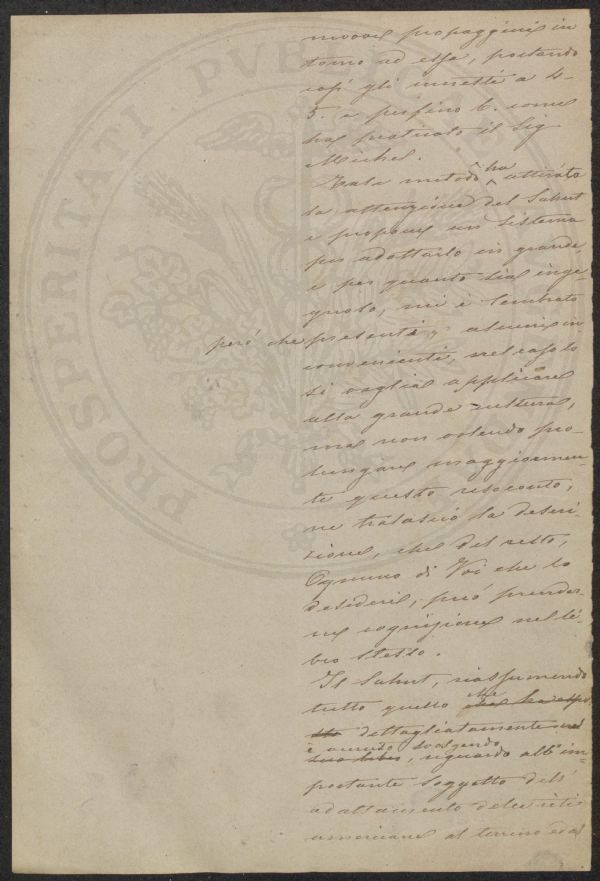 nuove propaggini in
torno ad essa, portando
così gli innesti a 4-
5. e perfino 6. come
ha praticato il Sig
Michel.
Tale metodo ha attirato
la attenzione del Sahut
e propone un sistema
per adottarlo in grande,
e per quanto sia inge-
gnoso, mi è sembrato
però che presenti, alcuni in-
convenienti, nel caso lo
si voglia applicare
alla grande cultura,
ma non volendo pro-
lungare maggiormen-
te questo resoconto,
ne tralascio la descri-
zione, che del resto,
Ognuno di Voi che lo
desideri, può prender-
ne cognizione nel li-
bro stesso.
Il Sahut, riassumendo
tutto quello che
dettagliatamente
è venuto svolgendo
, riguardo all' im-
portante soggetto dell'
adattamento delle viti
americane al terreno ed al
PROSPERITATI PVBLICAE